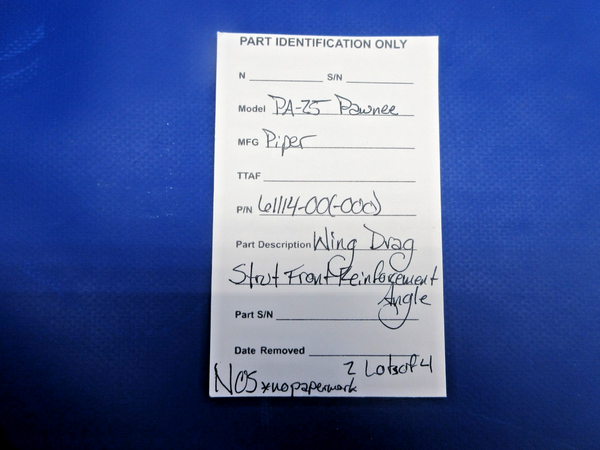 PART IDENTIFICATION ONLY
N S/N
Model PA-25 Pawnee
MFG Piper
TTAF
P/N 61114-00(-000)
Part Description Wing Drag
Strut Front Reinforcement
Angle
Part S/N
Date Removed
2 Lots of 4
NOS *no paperwork